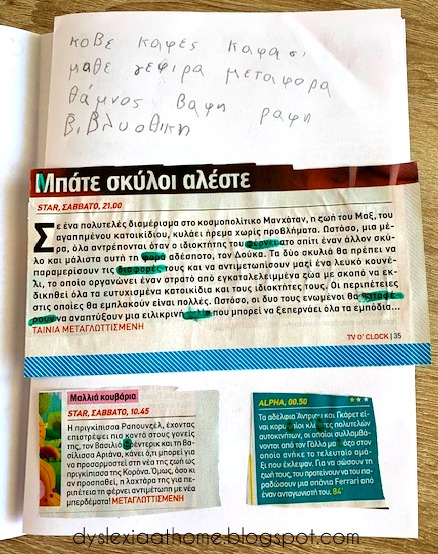 κοβε καφες καφασι
μαθε γεφιρα μεταφορα
θάμνος βαφη ραφη
βιβλυοθικη
Μπάτε σκύλοι αλέστε
STAR, ΣΑΒΒΑΤΟ, 21.00
Σε ένα πολυτελές διαμέρισμα στο κοσμοπολίτικο Μανχάταν, η ζωή του Μαξ, του
αγαπημένου κατοικίδιου, κυλάει ήρεμα χωρίς προβλήματα. Ωστόσο, μια μέ-
ρα, όλα ανατρέπονται όταν ο ιδιοκτήτης του φέρνει στο σπίτι έναν άλλον σκύ-
λο και μάλιστα αυτή τη φορά αδέσποτο, τον Δούκα. Τα δύο σκυλιά θα πρέπει να
παραμερίσουν τις διαφορές τους και να αντιμετωπίσουν μαζί ένα λευκό κουνέ-
λι, το οποίο οργανώνει έναν στρατό από εγκαταλελειμμένα ζώα με σκοπό να εκ-
δικηθεί όλα τα ευτυχισμένα κατοικίδια και τους ιδιοκτήτες τους. Οι περιπέτειες
στις οποίες θα εμπλακούν είναι πολλές. Ωστόσο, οι δυο τους ενωμένοι θα καταφέ-
ρουν να αναπτύξουν μια ειλικρινή φιλία που μπορεί να ξεπεράσει όλα τα εμπόδια...
ΤΑΙΝΙΑ ΜΕΤΑΓΛΩΤΤΙΣΜΕΝΗ
TV O' CLOCK | 35
Μαλλιά κουβάρια
STAR, ΣΑΒΒΑΤΟ, 10.45
Η πριγκίπισσα Ραπουνζέλ, έχοντας
επιστρέψει πια κοντά στους γονείς
της, τον Βασιλιά Φρέντερικ και τη Βα-
σίλισσα Αριάνα, κάνει ό,τι μπορεί για
να προσαρμοστεί στη νέα της ζωή ως
πριγκίπισσα της Κορόνα. Όμως, όσο κι
αν προσπαθεί, η λαχτάρα της για πε-
ριπέτεια τη φέρνει αντιμέτωπη με νέα
μπερδέματα! ΜΕΤΑΓΛΩΤΤΙΣΜΕΝΗ
ALPHA, 00.50
Τα αδέλφια Άντριου και Γκάρετ εί-
ναι κορυφαίοι κλέφτες πολυτελών
αυτοκινήτων, οι οποίοι συλλαμβά-
νονται από τον Γάλλο μαφιόζο στον
οποίο ανήκε το τελευταίο αμά-
ξι που έκλεψαν. Για να σώσουν τη
ζωή τους, του προτείνουν να του πα-
ραδώσουν μια σπάνια Ferrari από
έναν ανταγωνιστή του. 84'
dyslexiaathome.blogspot.com